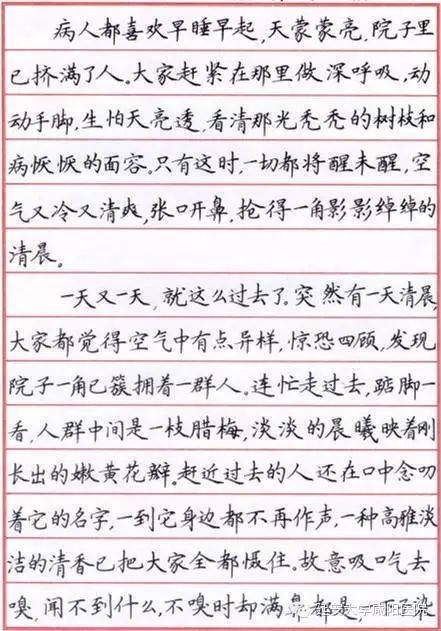 病人都喜欢早睡早起,天蒙蒙亮,院子里
已挤满了人。大家赶紧在那里做深呼吸,动
动手脚,生怕天亮透,看清那光秃秃的树枝和
病恹恹的面容。只有这时,一切都将醒未醒,空
气又冷又清爽,张口开鼻,抢得一角影影绰绰的
清晨。
一天又一天,就这么过去了。突然有一天清晨,
大家都觉得空气中有点异样,惊恐四顾,发现
院子一角已簇拥着一群人。连忙走过去,踮脚一
看,人群中间是一枝腊梅,淡淡的晨曦映着刚
长出的嫩黄花瓣。赶近过去的人还在口中念叨
着它的名字,一到它身边都不再作声,一种高雅淡
洁的清香已把大家全都慑住。故意吸口气去
嗅,闻不到什么,不嗅时却满鼻都是,一下子染
大学咸阳医院